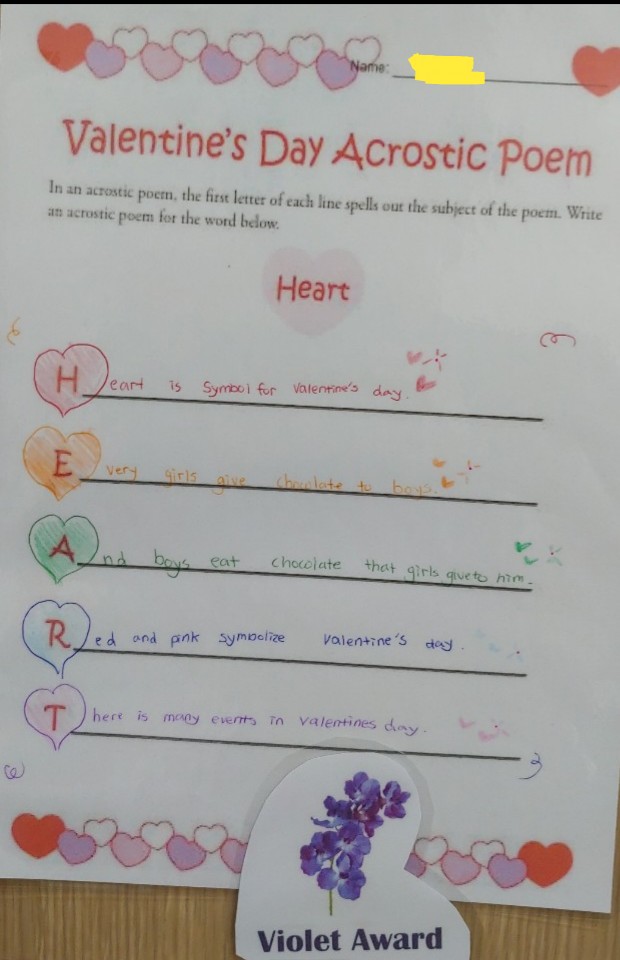 Name:
Valentine's Day Acrostic Poem
In an acrostic poem, the first letter of each line spells out the subject of the poem. Write
an acrostic poem for the word below.
Heart
Heart is Symbol for Valentine's day.
Every girls give chocolate to boys.
And boys eat chocolate that girls give to him.
Red and pink symbolize Valentine's day.
There is many events in valentines day.
Violet Award